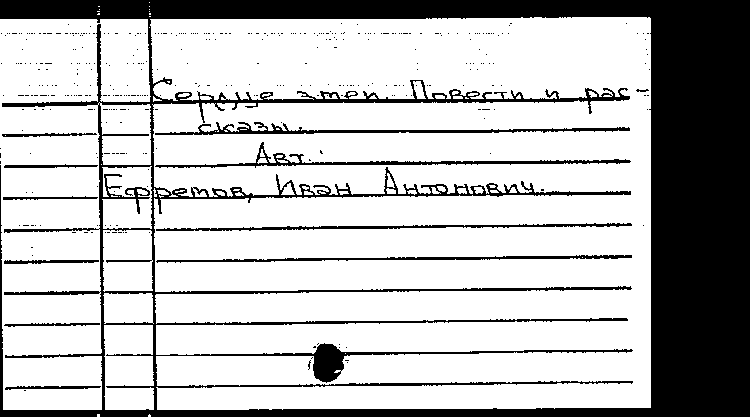 Сердце змеи. Повести и рас-
сказы.
Авт.:
Ефремов, Иван Антонович.